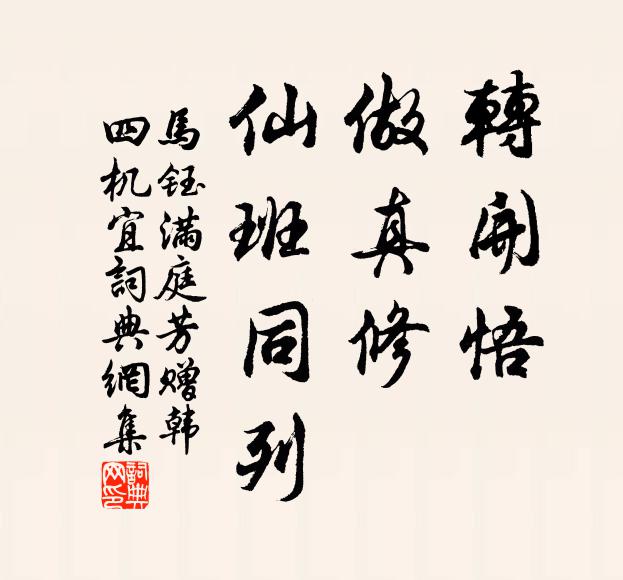 轉開悟
做真修
仙班同列
馬钰满庭芳赠韩
四机宜詞典網集
詞典网印